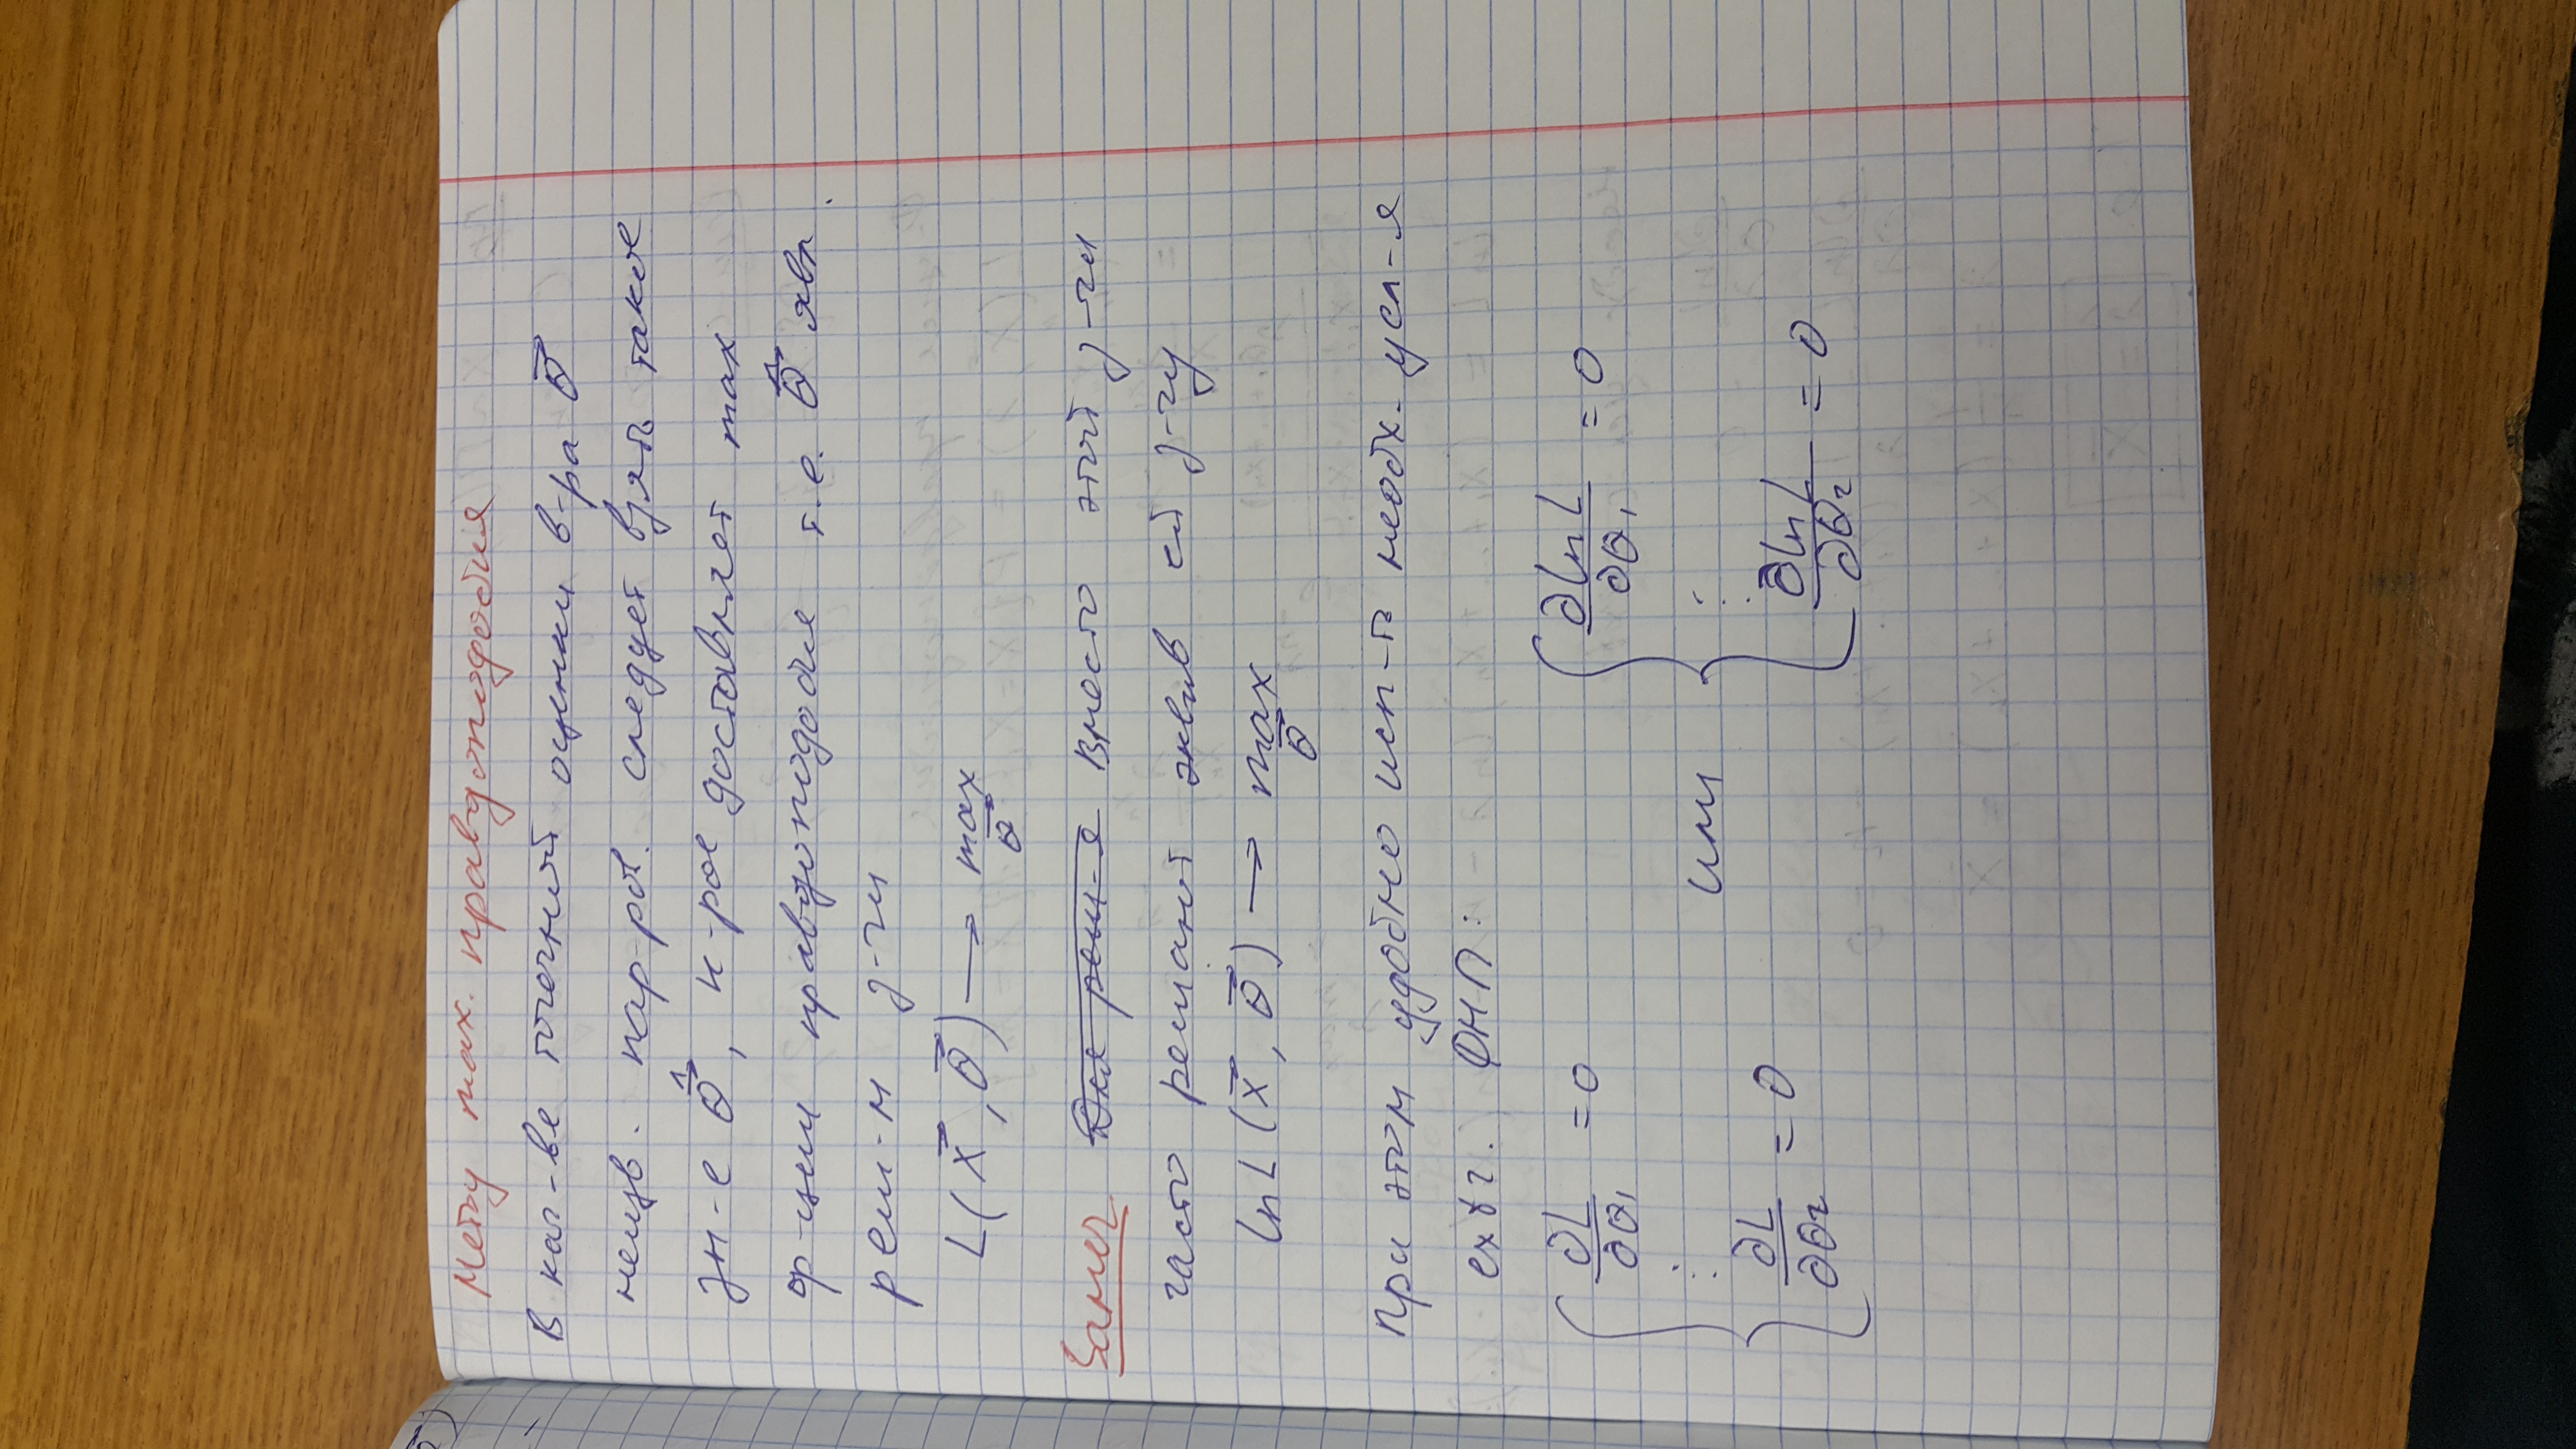 Метод max. правдоподобия
В кач-ве точечной оценки в-ра θ⃗
неизв. пар-ров. следует взять такое
зн-е θ̂⃗, к-рое доставляет max
ф-ции правдоподобия т.е. θ̂⃗ явл.
реш-м з-чи
L(x⃗, θ⃗) → max θ⃗
Замеч Для реш-я Вместо этой з-чи
часто решают эквив ей з-чу
ln L(x⃗, θ⃗) → max θ⃗
При этом удобно исп-ть необх. усл-я
extr. ФНП:
{ ∂L/∂θ₁ = 0 ⋮ ∂L/∂θr = 0 или { ∂ln L/∂θ₁ = 0 ⋮ ∂ln L/∂θr = 0